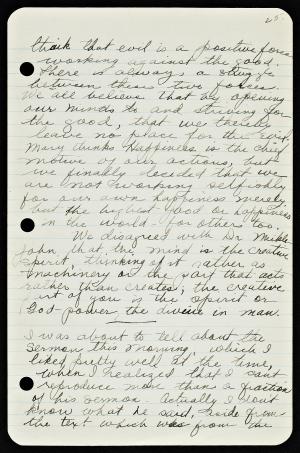 25
think that evil is a positive force
working against the good.
There is always a struggle
between these two forces.
We all believe that by opening
our minds to and striving for
the good, that we thereby
leave no place for the evil.
Mary thinks Happiness is the chief
motive of our actions, but
we finally decided that we
are not working selfishly
for our own happiness merely
but the highest good or happiness
in the world - for others too.
We disagreed with Dr
John that the mind is the creative
spirit, thinking of it rather as
machinery or the part that acts
rather than creates; the creative
part of you is the spirit or
God-power, the divine in man.
I was about to tell about the
sermon this morning, which I
liked pretty well at the time,
when I realized that I can't
reproduce more than a fraction
of his sermon. Actually I don't
know what he said, aside from
the text which was from the